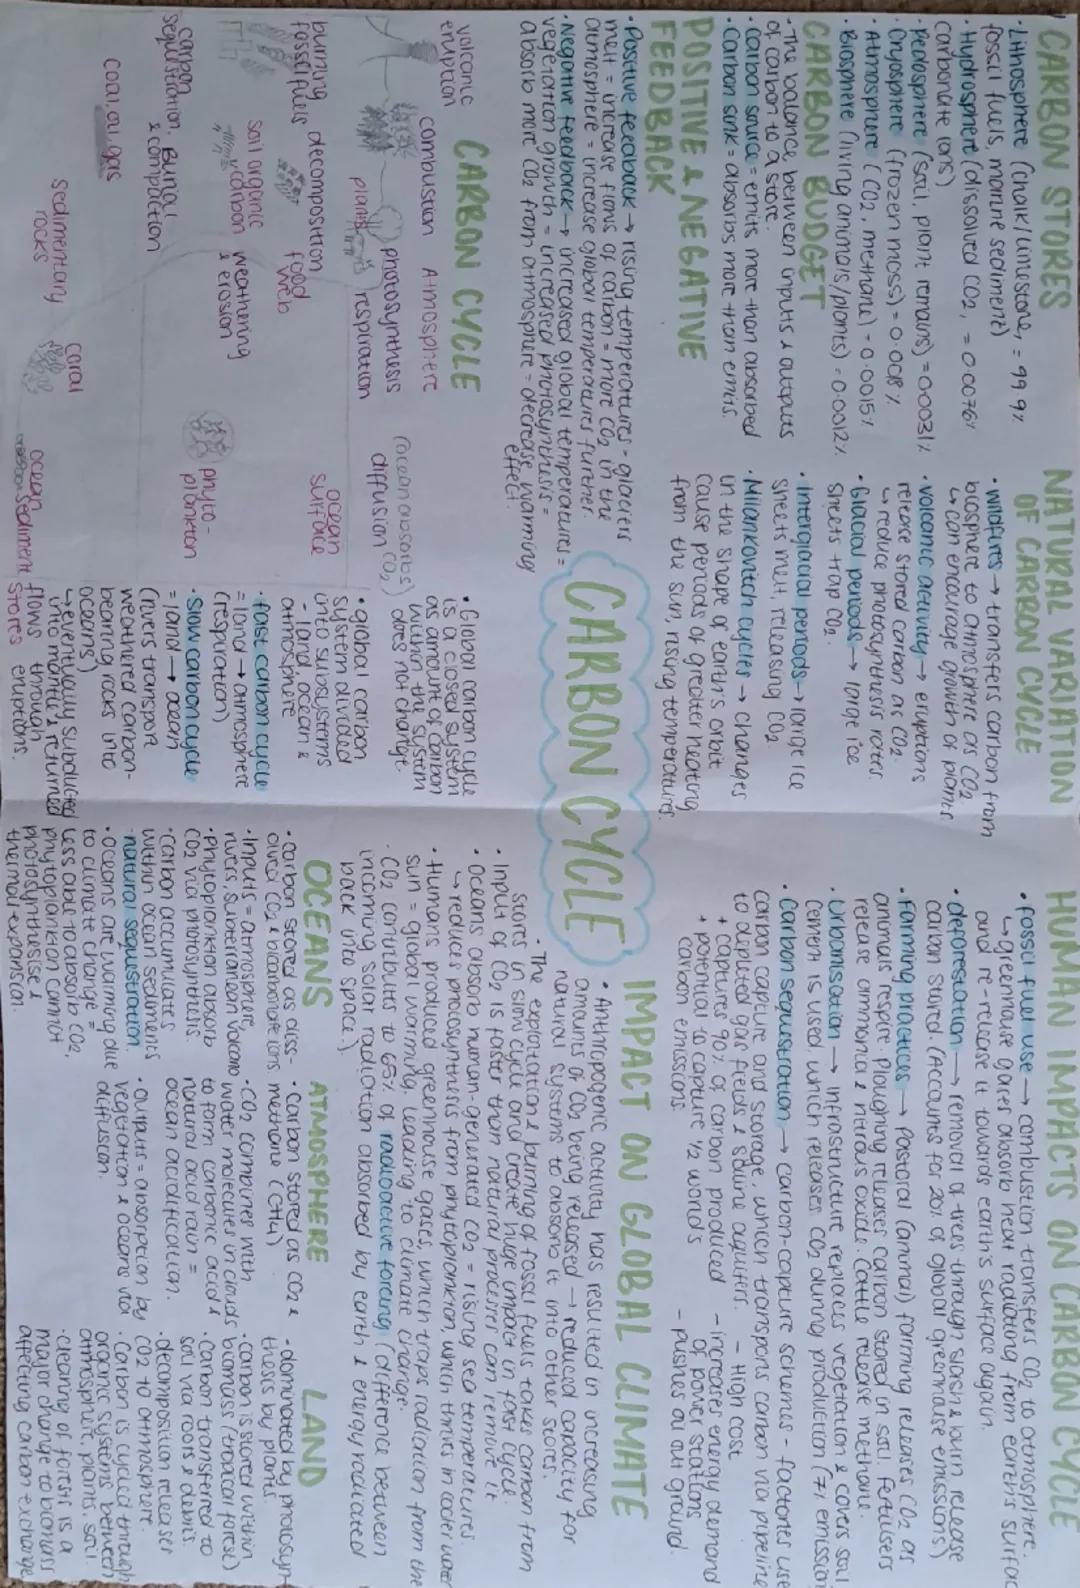 CARBON STORES
· Lithosphere (chalk/limestone,
fossil fuels, marine sediment) = 99.9%
· Hydrosphere (dissolved CO2,
carbonate ions) = 0.0076%
· Pedosphere (soil, plant remains) = 0.0031%
· Cryosphere (frozen moss) = 0.008%
· Atmosphere (CO2, methane) = 0.0015%
· Biosphere (living animals/plants) = 0.0012%
CARBON BUDGET
· The balance between inputs & outputs
of carbon to a store.
· Carbon source = emits more than absorbed
· Carbon sink = absorbs more than emits
POSITIVE & NEGATIVE
FEEDBACK
· Positive feedback → rising temperatures = glaciers
melt = increase flows of carbon = more CO2 in the
atmosphere = increase global temperatures further.
· Negative feedback → increased global temperatures =
vegetation growth = increased photosynthesis =
absorb more CO2 from atmosphere = decrease warming
effect.
CARBON CYCLE
volcanic
eruption
combustion
Atmosphere
photosynthesis
plants
respiration
diffusion
(ocean absorbs CO2)
burning
fossil fuels
decomposition
food
web
ocean
surface
soil organic
carbon
weathering
& erosion
phyto-
plankton
carbon
sequestration, Burial
& compaction
coal, oil, gas
sedimentary
rocks
coral
ocean
sediment
NATURAL VARIATION
OF CARBON CYCLE
· wildfires → transfers carbon from
biosphere to atmosphere as CO2
↳ can encourage growth of plants
· volcanic activity → eruptions
release stored carbon as CO2
↳ reduce photosynthesis rates.
· Glacial periods → large ice
sheets trap CO2.
· Interglacial periods → large ice
sheets melt, releasing CO2
· Milankovitch cycles → changes
in the shape of earth's orbit
cause periods of greater heating
from the sun, rising temperatures.
CARBON CYCLE
· Global carbon cycle
is a closed system
as amount of carbon
within the system
does not change.
· global carbon
system divided
into subsystems
- land, ocean &
atmosphere
· fast carbon cycle
= land → atmosphere
(respiration)
· Slow carbon cycle
= land → ocean
(rivers transport
weathered carbon-
bearing rocks into
oceans)
↳ eventually subducted
into mantle & returned
flows through
stores eruptions.
HUMAN IMPACTS ON CARBON CYCLE
· fossil fuel use → combustion transfers CO2 to atmosphere.
↳ greenhouse gases absorb heat radiating from earth's surface
and re-release it towards earth's surface again.
· deforestation → removal of trees through slash & burn release
carbon stored. (Accounts for 20% of global greenhouse emissions)
· Farming practices → Pastoral (animal) farming releases CO2 as
animals respire. Ploughing releases carbon stored in soil. Fertilisers
release ammonia & nitrous oxide. Cattle release methane.
· Urbanisation → infrastructure replaces vegetation & covers soil
Cement is used, which releases CO2 during production (7% emission
· Carbon sequestration → carbon-capture schemes - factories use
carbon capture and storage, which transports carbon via pipeline
to depleted gas fields & saline aquifers.
+ captures 90% of carbon produced
+ potential to capture 1/2 world's
carbon emissions
- High cost
- increases energy demand
of power stations
- pushes oil out ground.
IMPACT ON GLOBAL CLIMATE
· Anthropogenic activity has resulted in increasing
amounts of CO2 being released → reduced capacity for
natural systems to absorb it into other stores.
· The exploitation & burning of fossil fuels takes carbon from
stores in slow cycle and create huge impact in fast cycle.
· Input of CO2 is faster than natural processes can remove it
· Oceans absorb human-generated CO2 = rising sea temperatures.
↳ reduces photosynthesis from phytoplankton, which thrives in cooler water
· Humans produced greenhouse gases, which traps radiation from the
sun = global warming, leading to climate change.
· CO2 contributes to 65% of radioactive forcing (difference between
incoming solar radiation absorbed by earth & energy radiated
back into space.)
OCEANS
· carbon stored as diss-
olved CO2 & bicarbonate ions
· Inputs = atmosphere,
rivers, subterranean volcano
· phytoplankton absorb
CO2 via photosynthesis.
· Carbon accumulates
within ocean sediments
- natural sequestration.
· Oceans are warming due
to climate change =
less able to absorb CO2,
phytoplankton cannot
photosynthesise &
thermal expansion.
ATMOSPHERE
· Carbon stored as CO2 &
methane (CH4)
· CO2 combines with
water molecules in clouds
to form carbonic acid &
natural acid rain =
ocean acidification.
· outputs = absorption by
vegetation & oceans via
diffusion.
LAND
· dominated by photosyn-
thesis by plants.
· carbon is stored within
biomass (tropical forest)
· carbon transferred to
soil via roots & debris.
· decomposition releases
CO2 to atmosphere.
· Carbon is cycled through
organic systems between
atmosphere, plants, soil.
· Clearing of forests is a
major change to biomass
affecting carbon exchange